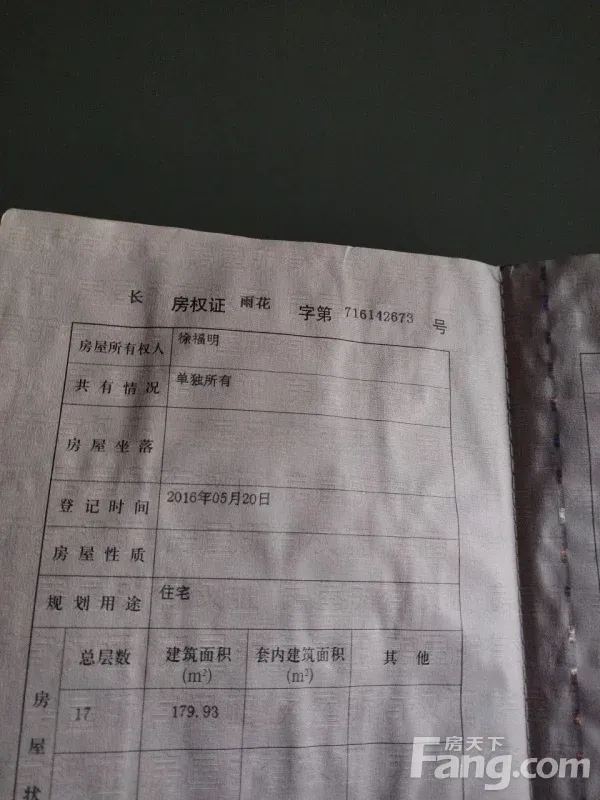 长 房权证 雨花 字第 716142673 号
房屋所有权人 徐福明
共有情况 单独所有
房屋坐落
登记时间 2016年05月20日
房屋性质
规划用途 住宅
房屋状
总层数 建筑面积(m²) 套内建筑面积(m²) 其他
17 179.93
房天下
Fang.com